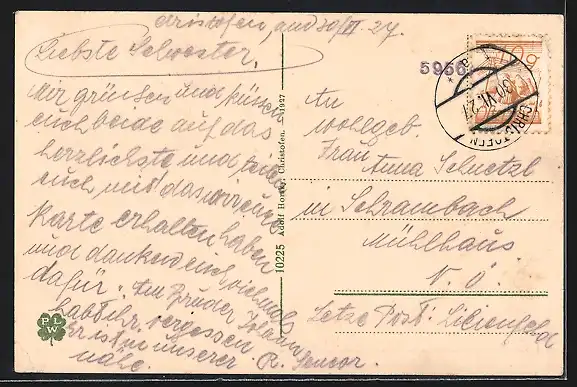 Christofen, am 30/VI 27.
Liebste Schwester,
Wir grüssen und küssen
euch beide auf das
herzlichste und teilen
euch mit das wir eure
Karte erhalten haben
und danken euch vielmals
dafür. Am Bruder Johann
habt ihr vergessen
Er ist in unserer
nähe. R.
5966
10225 Adolf Christofen. 1927
CHRISTOFEN
30.VI.27
10g
An
wohlgeb.
Frau
Anna Schretzl
in Schrambach
Mühlhaus
N. Ö.
Letze Post: Lilienfeld
P L W